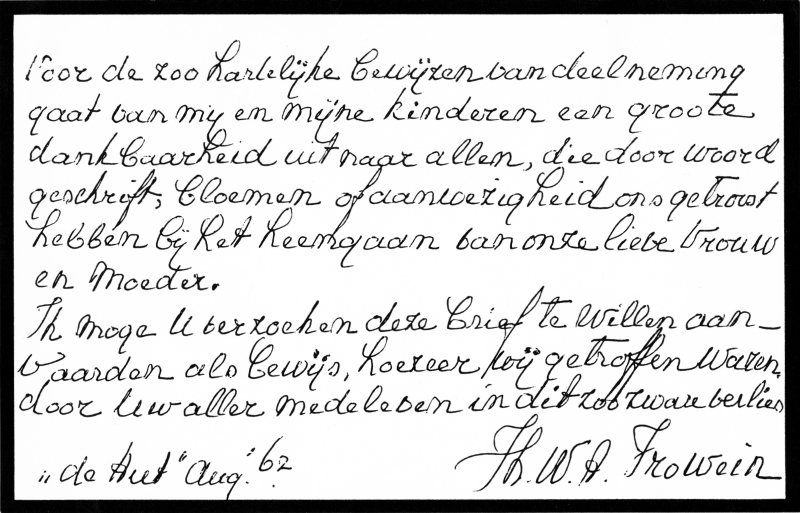 Voor de zoo hartelijke bewijzen van deelneming
gaat van mij en mijne kinderen een groote
dankbaarheid uit naar allen, die door woord
geschrift, bloemen of aanwezigheid ons getroost
hebben bij het heengaan van onze lieve Vrouw
en Moeder.
Ik moge U verzoeken deze brief te willen aan-
vaarden als bewijs, hoezeer wij getroffen waren,
door Uw aller medeleven in dit zoo zware verlies
"de Hut" Aug. '62
Th. W. A. Frowein